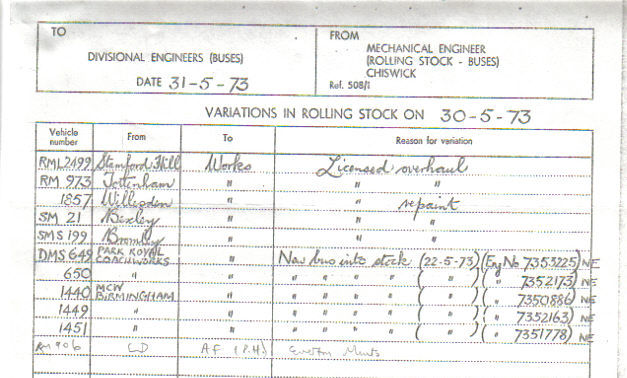 TO
DIVISIONAL ENGINEERS (BUSES)
DATE 31-5-73
FROM
MECHANICAL ENGINEER
(ROLLING STOCK - BUSES)
CHISWICK
Ref. 508/1
VARIATIONS IN ROLLING STOCK ON 30-5-73
Vehicle number From To Reason for variation
RML2499 Stamford Hill Works Licensed overhaul
RM 973 Tottenham " " "
1857 Willesden " " repaint
SM 21 Bexley " " "
SMS 199 Bromley " " "
DMS 649 PARK ROYAL COACHWORKS " New bus into stock (22-5-73) (Eng No 7353225) NE
650 " " " " " " ( " ) ( " 7352173) NE
1440 MCW BIRMINGHAM " " " " " ( " ) ( " 7350886) NE
1449 " " " " " " ( " ) ( " 7352163) NE
1451 " " " " " " ( " ) ( " 7351778) NE
RM 906 LD AF (P.H)